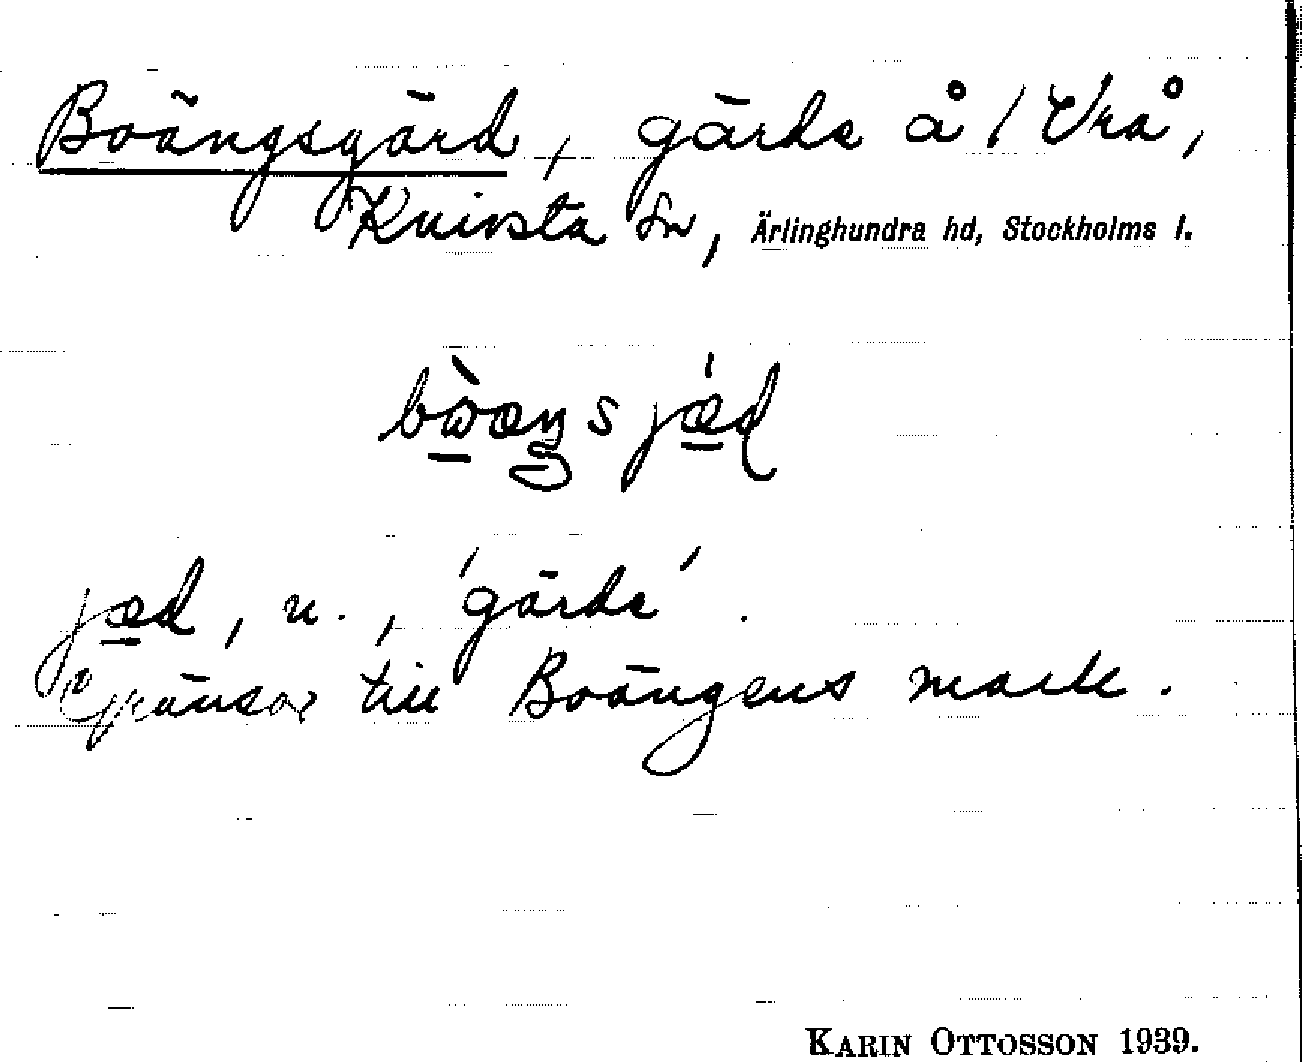 Boängsgärd, gärde å 1 Vrå,
Knivsta sn, Ärlinghundra hd, Stockholms l.
bɷ̀æŋsjǽd
jæd, n., 'gärde'.
Gränsar till Boängens mark.
KARIN OTTOSSON 1939.